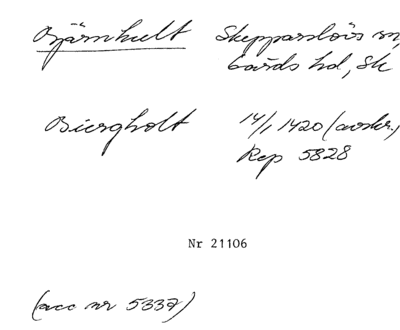 Bjärnhult Skepparslövs sn,
Gärds hd, Sk
Biergholt 14/1 1420 (avskr.)
Rep 5828
Nr 21106
(acc nr 5337)